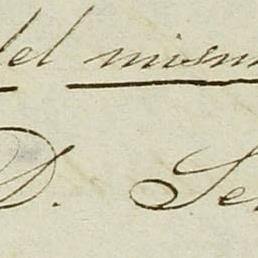 del mism
D. Se